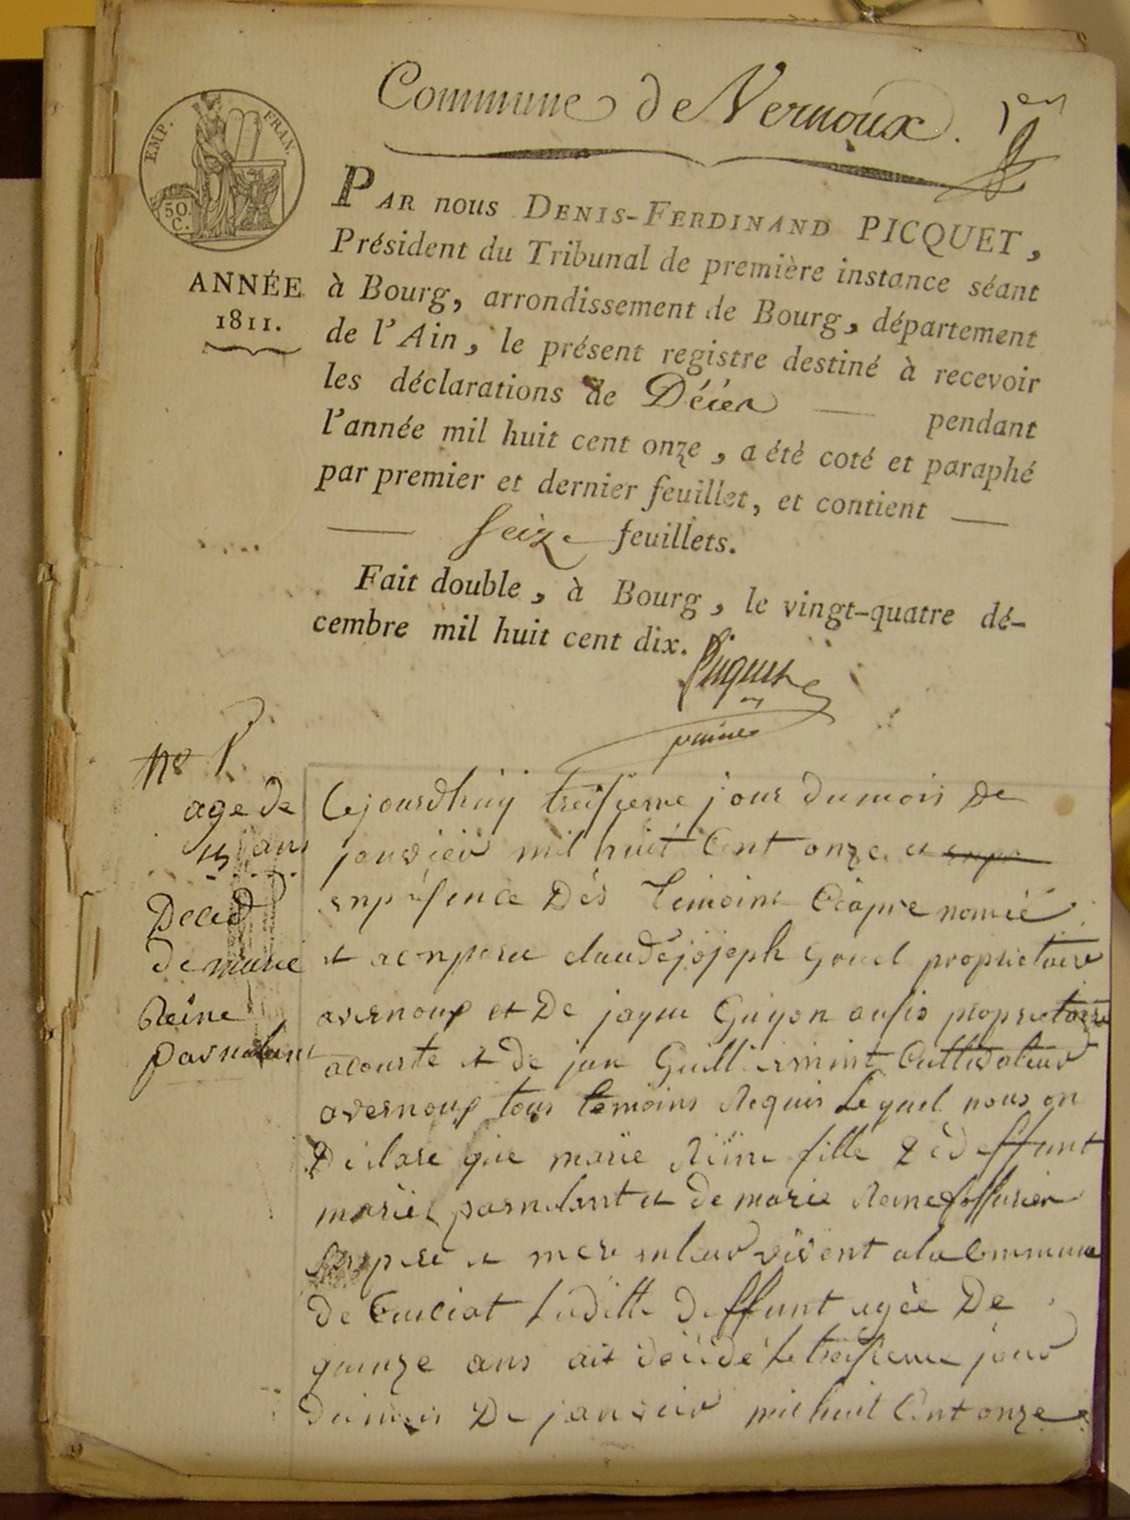 Commune de Vernoux. 1er
EMP. FRAN.
50. C.
ANNÉE
1811.
PAR nous DENIS-FERDINAND PICQUET,
Président du Tribunal de première instance séant
à Bourg, arrondissement de Bourg, département
de l'Ain, le présent registre destiné à recevoir
les déclarations de Décès — pendant
l'année mil huit cent onze, a été coté et paraphé
par premier et dernier feuillet, et contient —
— seize feuillets.
Fait double, à Bourg, le vingt-quatre dé-
cembre mil huit cent dix.
Picquet
age de
15 ans
Deced
de marie
Reine
parnelant
Cejourdhuy treisieme jour du mois De
janvier mil huit Cent onze et
enpresence Dés temoins Ciapre nomié
et aconparu claude joseph gorel proprietaire
avernoux et De jaque Guyon ausis proprietaire
acourte et de jan Guilliermint Cultivateur
avernoux tous temoins Requis Lequel nous on
Déclaré que marie Reine fille de deffunt
marie parnelant et de marie Reine
pere et mere enleur vivent ala Commune
de Cuiciat Laditte deffunt agée De
quinze ans ait décidé le treisieme jour
du mois De janvier mil huit Cent onze